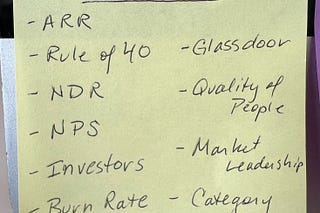 - ARR
- Rule of 40
- NDR
- NPS
- Investors
- Burn Rate
- Glassdoor
- Quality of
People
- Market
Leadership
- Category